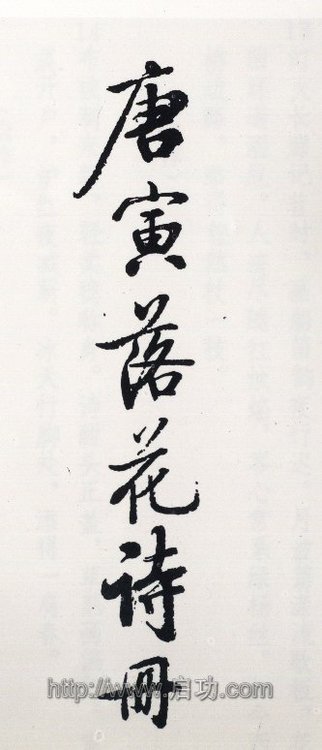 唐寅落花詩冊
http://www.启功.com